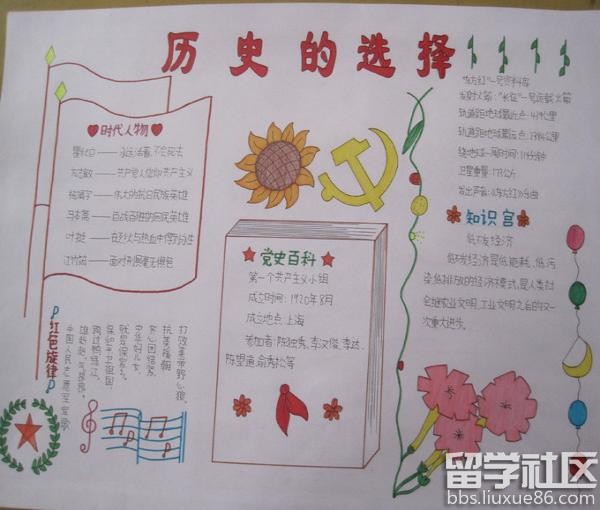 历史的选择
时代人物
瞿秋白——永远活着,不会死去
方志敏——共产党人信仰共产主义
杨靖宇——伟大的抗日民族英雄
马本斋——百战百胜的回民英雄
叶挺——在烈火与热血中得到永生
江竹筠——面对酷刑毫无惧色
党史百科
第一个共产主义小组
成立时间:1920年8月
成立地点:上海
参加者:陈独秀、李汉俊、李达、
陈望道、俞秀松等
"东方红"一号资料库
发射火箭:"长征"一号运载火箭
轨道距地球最近点:439公里
轨道距地球最远点:2384公里
绕地球一周时间:114分钟
卫星重量:173公斤
发出声音:《东方红》乐曲
知识宫
低碳经济
低碳经济是低能耗、低污
染、低排放的经济模式,是人类社
会继农业文明、工业文明之后的又一
次重大进步。
红色旋律
中国人民志愿军军歌
雄赳赳,气昂昂,
跨过鸭绿江。
保和平卫祖国
就是保家乡。
中华好儿女,
齐心团结紧。
抗美援朝
打败美帝野心狼。
留学社区
bbs.liuxue86.com